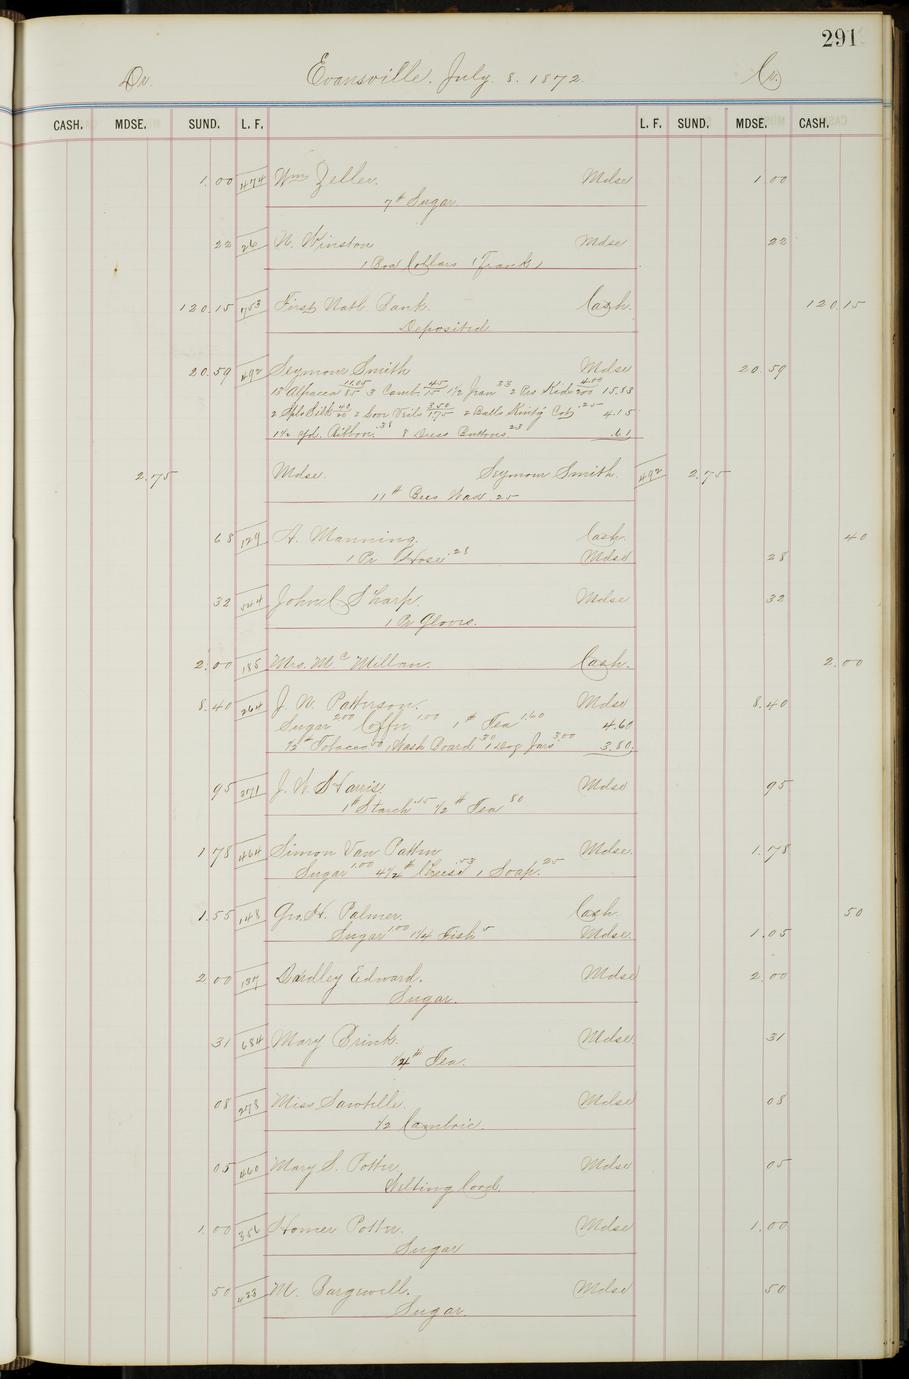 291
Dr. Evansville. July. 8. 1872 Cr.
CASH. MDSE. SUND. L. F. L. F. SUND. MDSE. CASH.
1.00 474 Wm Zeller. Mdse 1.00
7# Sugar
22 26 N. Winston Mdse 22
1 Box Collars (Frank)
120.15 753 First Natl Bank. Cash. 120.15
Deposited
20.59 492 Seymour Smith Mdse 20.59
13 Alpacca 11.05/85 3 Comb. 45/15 1 1/2 Jean 33 2 Prs Kids 4.00/200 15.83
2 Spls Silk 40/20 2 Door Veils 3.50/175 2 Balls Knitg Cot .25 4.15
1 1/2 yds. Ribbon .38 8 Dress Buttons 23 .61
2.75 Mdse. Seymour Smith. 492 2.75
11# Bees Wax .25
68 129 A. Manning. Cash. 40
1 Pr Hose .28 Mdse 28
32 524 John C Sharp. Mdse 32
1 Pr Gloves.
2.00 185 Mrs. Mc Millan. Cash. 2.00
8.40 264 J. W. Patterson. Mdse 8.40
Sugar 200 Coffee 1.00 1# Tea 1.60 4.60
1/2# Tobacco 1 Wash Board .30 1 Doz Jars 3.00 3.80
95 371 J. W. Harris. Mdse 95
1# Starch .15 1/2# Tea 80
1.78 464 Simon Van Patten. Mdse. 1.78
Sugar 1.00 4 1/2# Cheese .53 1 Soap. 25
1.55 148 Geo. H. Palmer. Cash. 50
Sugar 1.00 1 1/4 Fish 5 Mdse. 1.05
2.00 137 Bardley Edward. Mdse 2.00
Sugar.
31 684 Mary Brink. Mdse. 31
1/4# Tea.
08 278 Miss Sawtelle. Mdse 08
1/2 Cambric.
05 460 Mary S. Potter Mdse 05
Welting Cord.
1.00 356 Homer Potter. Mdse 1.00
Sugar
50 433 M. Bargewell. Mdse 50
Sugar.